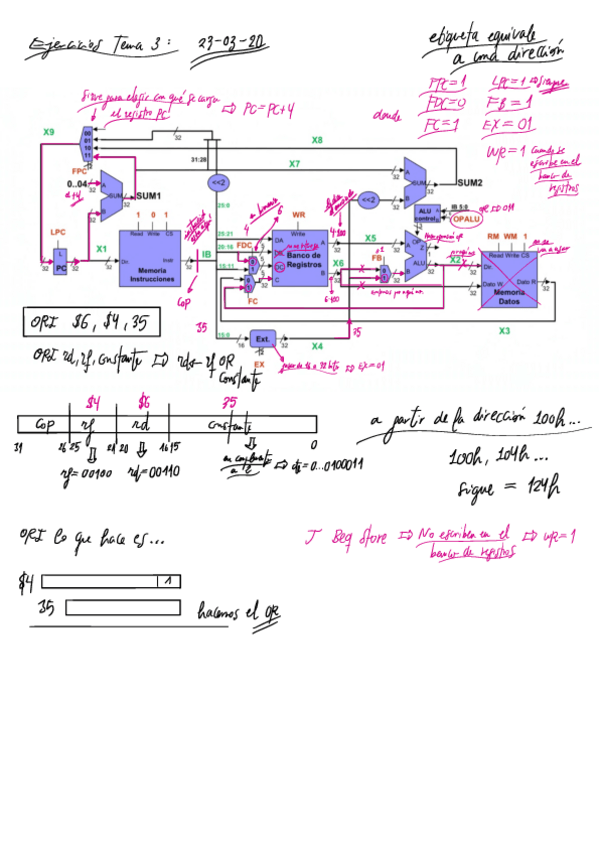 Ejercicios Tema 3: 23-03-20
etiqueta equivale
a una dirección
Sirve para elegir con qué se carga
el registro PC ⇨ PC=PC+4
donde
FPC=1 LPC=1 ⇨ siempre
FDC=0 FB=1
FC=1 EX=01
WR=1 cuando se
escribe en el
banco de
registros
X9
00
01
10
11
FPC
32
31:28
X8
X7
<<2
0..04
A
B
SUM
SUM1
LPC
L
PC
X1
1 0 1
Read Write CS
Dir.
Instr
Memoria
Instrucciones
IB
COP
20:0
20:21
20:16
15:11
15:0
FDC
FC
WR
Write
DA
C
A
B
Banco de
Registros
X5
X6
FB
<<2
SUM
SUM2
ALU
control
IB 5:0
OPALU
OP
Z
ALU
X2
RM WM 1
Read Write CS
Dir.
Dato W.
Dato R
Memoria
Datos
X3
35
16
Ext.
EX
X4
⇨ EX=01
ORI $6, $4, 35
ORI rd, rf, constante ⇨ rd← rf OR
constante
$4 $6 35
Cop rf rd constante
31 26 25 21 20 16 15 0
rf=00100 rd=00110
en complemento
a 2 ⇨ cte=0...0100011
a partir de la dirección 100h...
100h, 104h...
sigue = 124h
ORI lo que hace es...
J Beq Store ⇨ No escriben en el ⇨ WR=1
banco de registros
$4 1
35
hacemos el OR